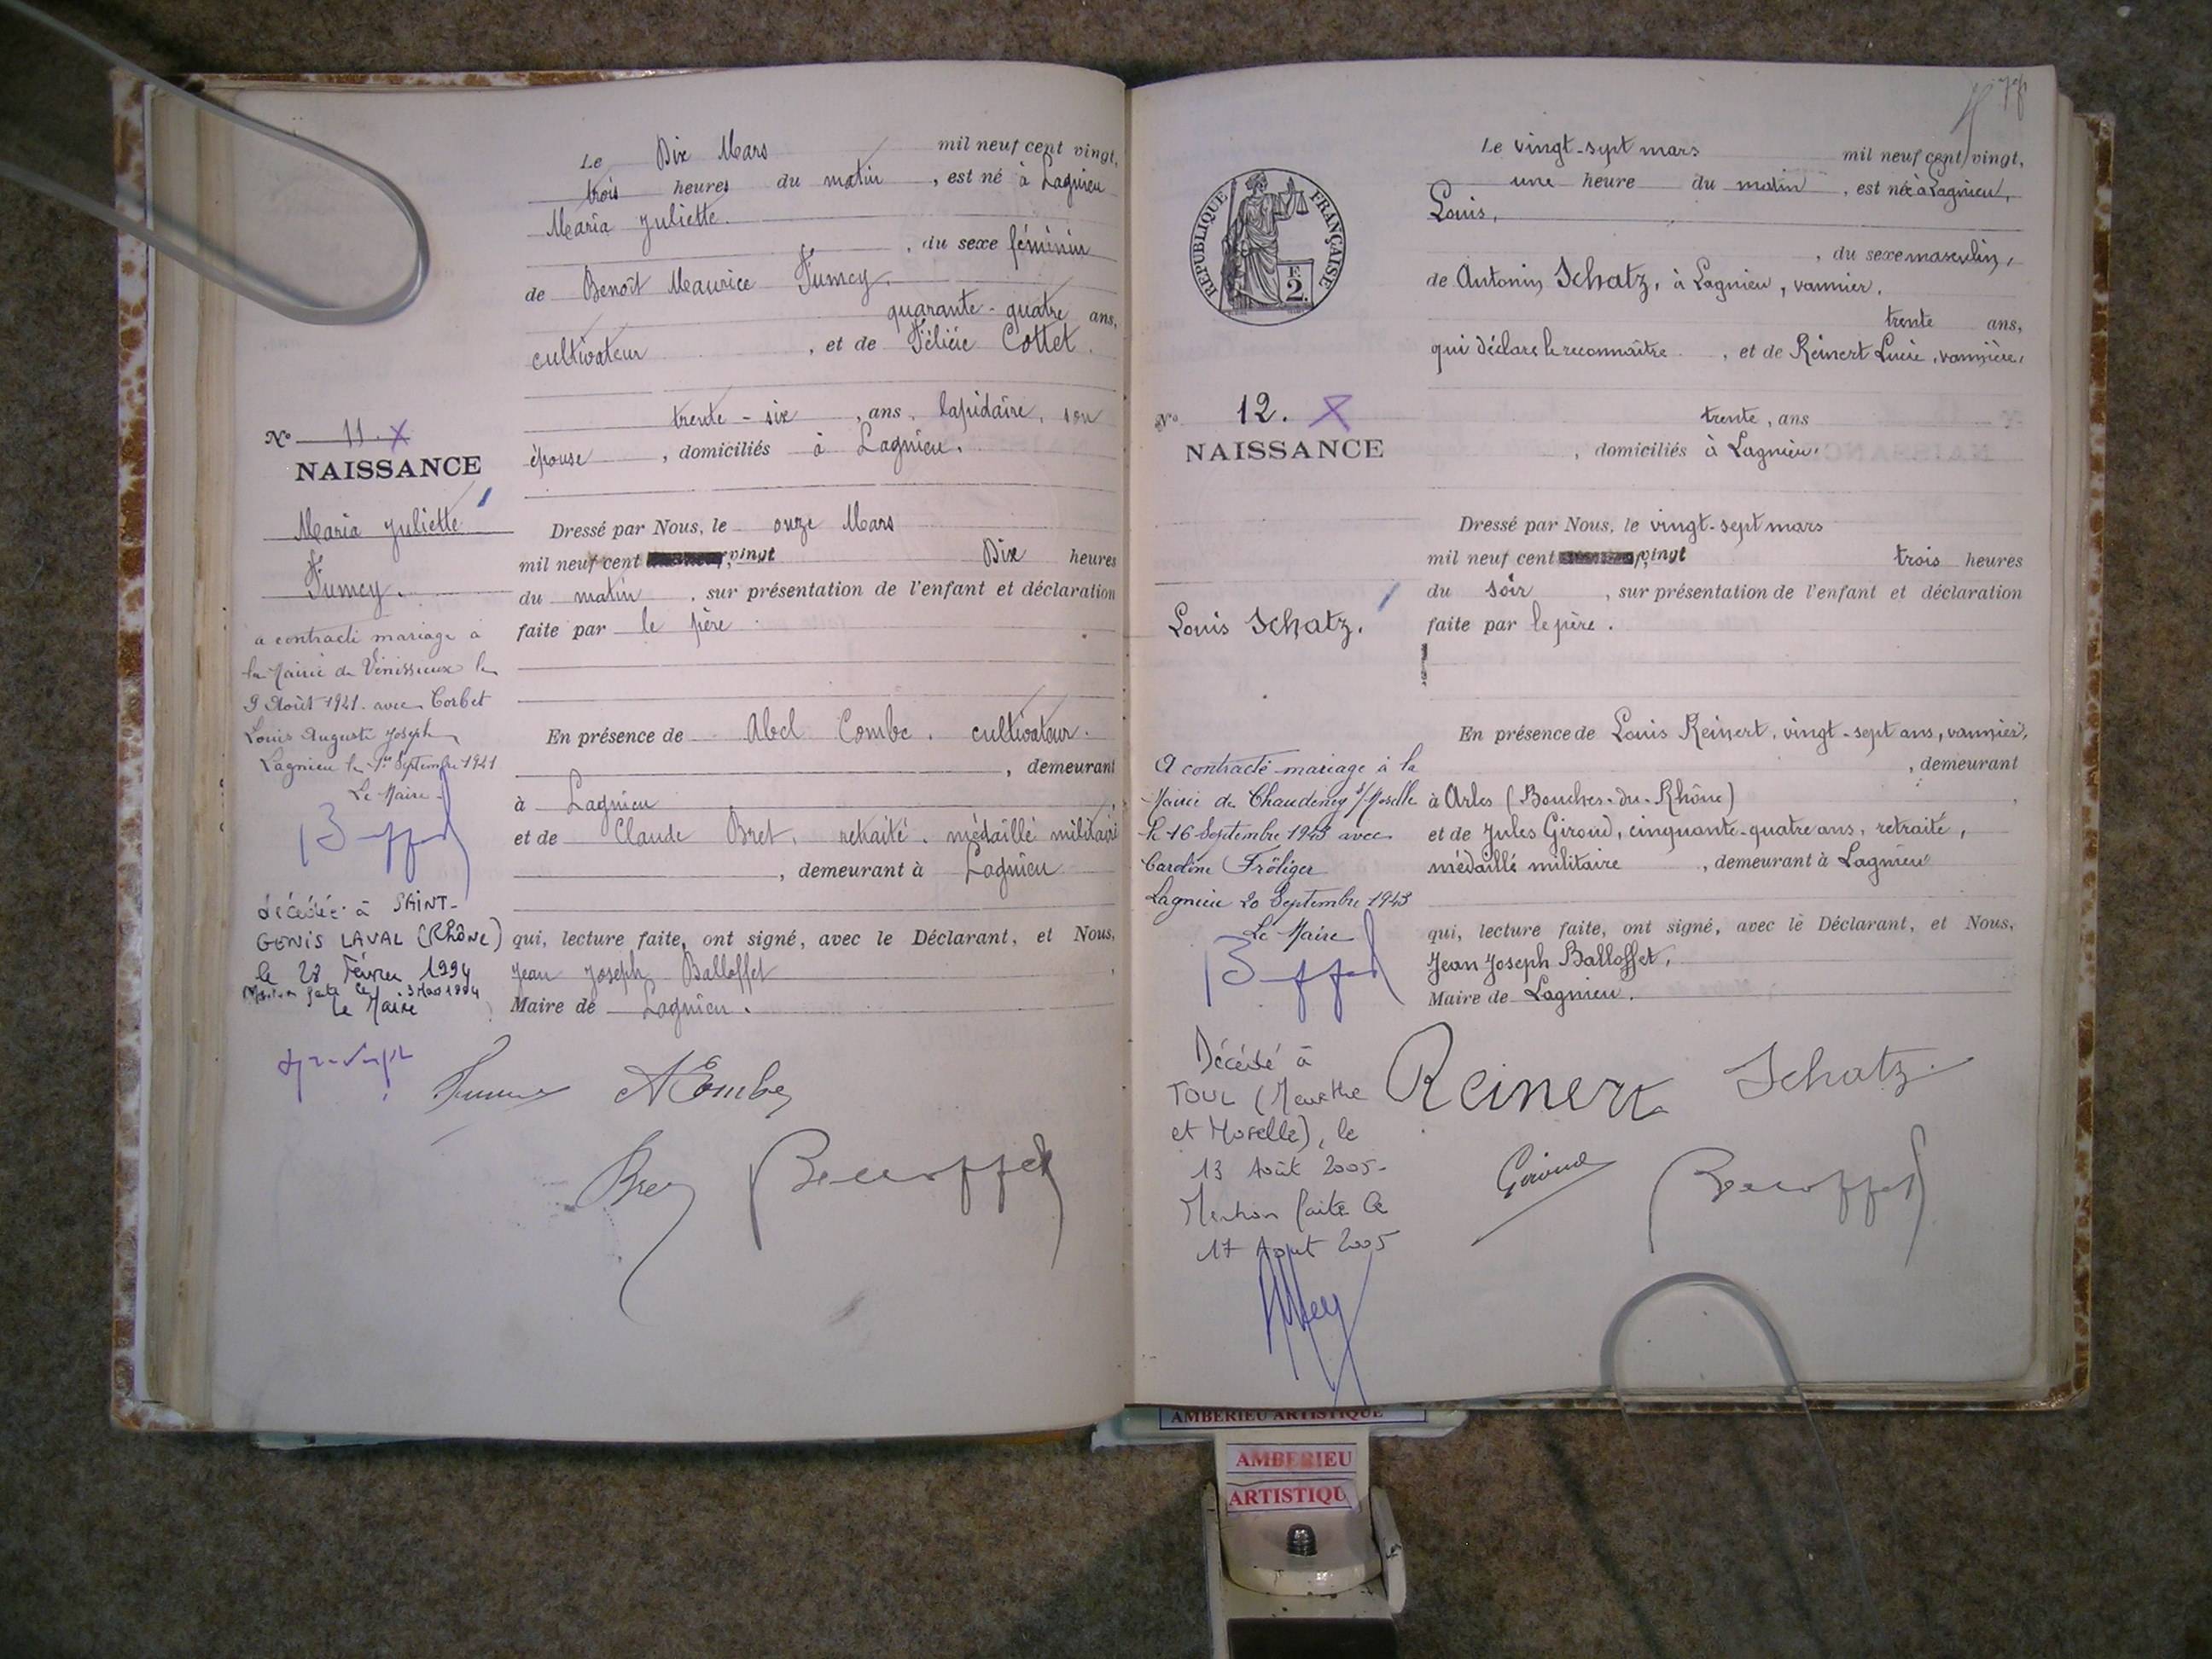 N° 11.
NAISSANCE
Maria Juliette
Fumey.
a contracté mariage à
la Mairie de Vénissieux le
9 Août 1941. avec Corbet
Louis Auguste Joseph
Lagnieu le 1er Septembre 1941
Le Maire
décédée à SAINT-
GENIS LAVAL (Rhône)
le 28 Février 1994
Mention faite le 3 Mars 1994
le Maire
Le Dix Mars mil neuf cent vingt,
trois heures du matin, est né à Lagnieu
Maria Juliette.
, du sexe féminin
de Benoît Maurice Fumey.
quarante-quatre ans,
cultivateur, et de Félicie Cottet.
trente-six, ans, lapidaire, son
épouse, domiciliés à Lagnieu.
Dressé par Nous, le onze Mars
mil neuf cent vingt Dix heures
du matin, sur présentation de l'enfant et déclaration
faite par le père.
En présence de Abel Combe. cultivateur.
, demeurant
à Lagnieu,
et de Claude Bret, retraité. médaillé militaire
, demeurant à Lagnieu
qui, lecture faite, ont signé, avec le Déclarant, et Nous,
Jean Joseph Balloffet,
Maire de Lagnieu.
Fumey AEombe
Bret Balloffet
78
RÉPUBLIQUE FRANÇAISE
E
2.
N° 12.
NAISSANCE
Louis Schatz.
A contracté mariage à la
Mairie de Chaudeney s/Moselle
le 16 Septembre 1943 avec
Caroline Fröliger
Lagnieu 20 Septembre 1943
Le Maire
Décédé à
TOUL (Meurthe
et Moselle), le
13 Août 2005-
Mention faite le
17 Août 2005
Le vingt-sept mars mil neuf cent vingt,
une heure du matin, est né à Lagnieu,
Louis,
, du sexe masculin,
de Antonin Schatz, à Lagnieu, vannier,
trente ans,
qui déclare le reconnaître, et de Reinert Lucie, vannière,
trente, ans
, domiciliés à Lagnieu.
Dressé par Nous, le vingt-sept mars
mil neuf cent vingt trois heures
du soir, sur présentation de l'enfant et déclaration
faite par le père.
En présence de Louis Reinert, vingt-sept ans, vannier,
, demeurant
à Arles (Bouches-du-Rhône),
et de Jules Giroud, cinquante-quatre ans, retraité,
médaillé militaire, demeurant à Lagnieu
qui, lecture faite, ont signé, avec le Déclarant, et Nous,
Jean Joseph Balloffet,
Maire de Lagnieu.
Reinert Schatz
Giroud Balloffet
AMBERIEU ARTISTIQUE
AMBERIEU
ARTISTIQU